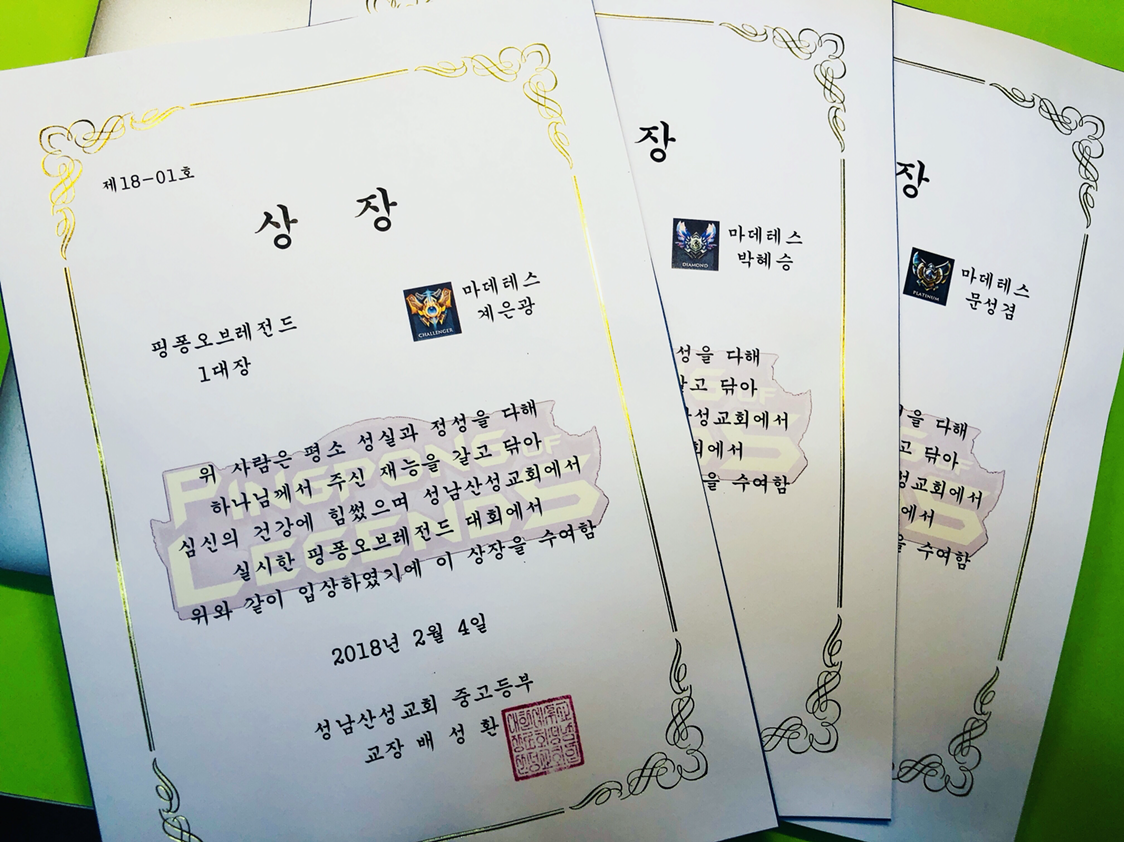 제18-01호
상 장
CHALLENGER
마데테스
제은광
핑퐁오브레전드
1대장
PINGPONGS OF
LEGENDS
위 사람은 평소 성실과 정성을 다해
하나님께서 주신 재능을 갈고 닦아
심신의 건강에 힘썼으며 성남산성교회에서
실시한 핑퐁오브레전드 대회에서
위와 같이 입상하였기에 이 상장을 수여함
2018년 2월 4일
성남산성교회 중고등부
교장 배 성 환
장
DIAMOND
마데테스
박혜승
성을 다해
갈고 닦아
성교회에서
회에서
을 수여함
장
PLATINUM
마데테스
문성겸
을 다해
고 닦아
성교회에서
에서
을 수여함